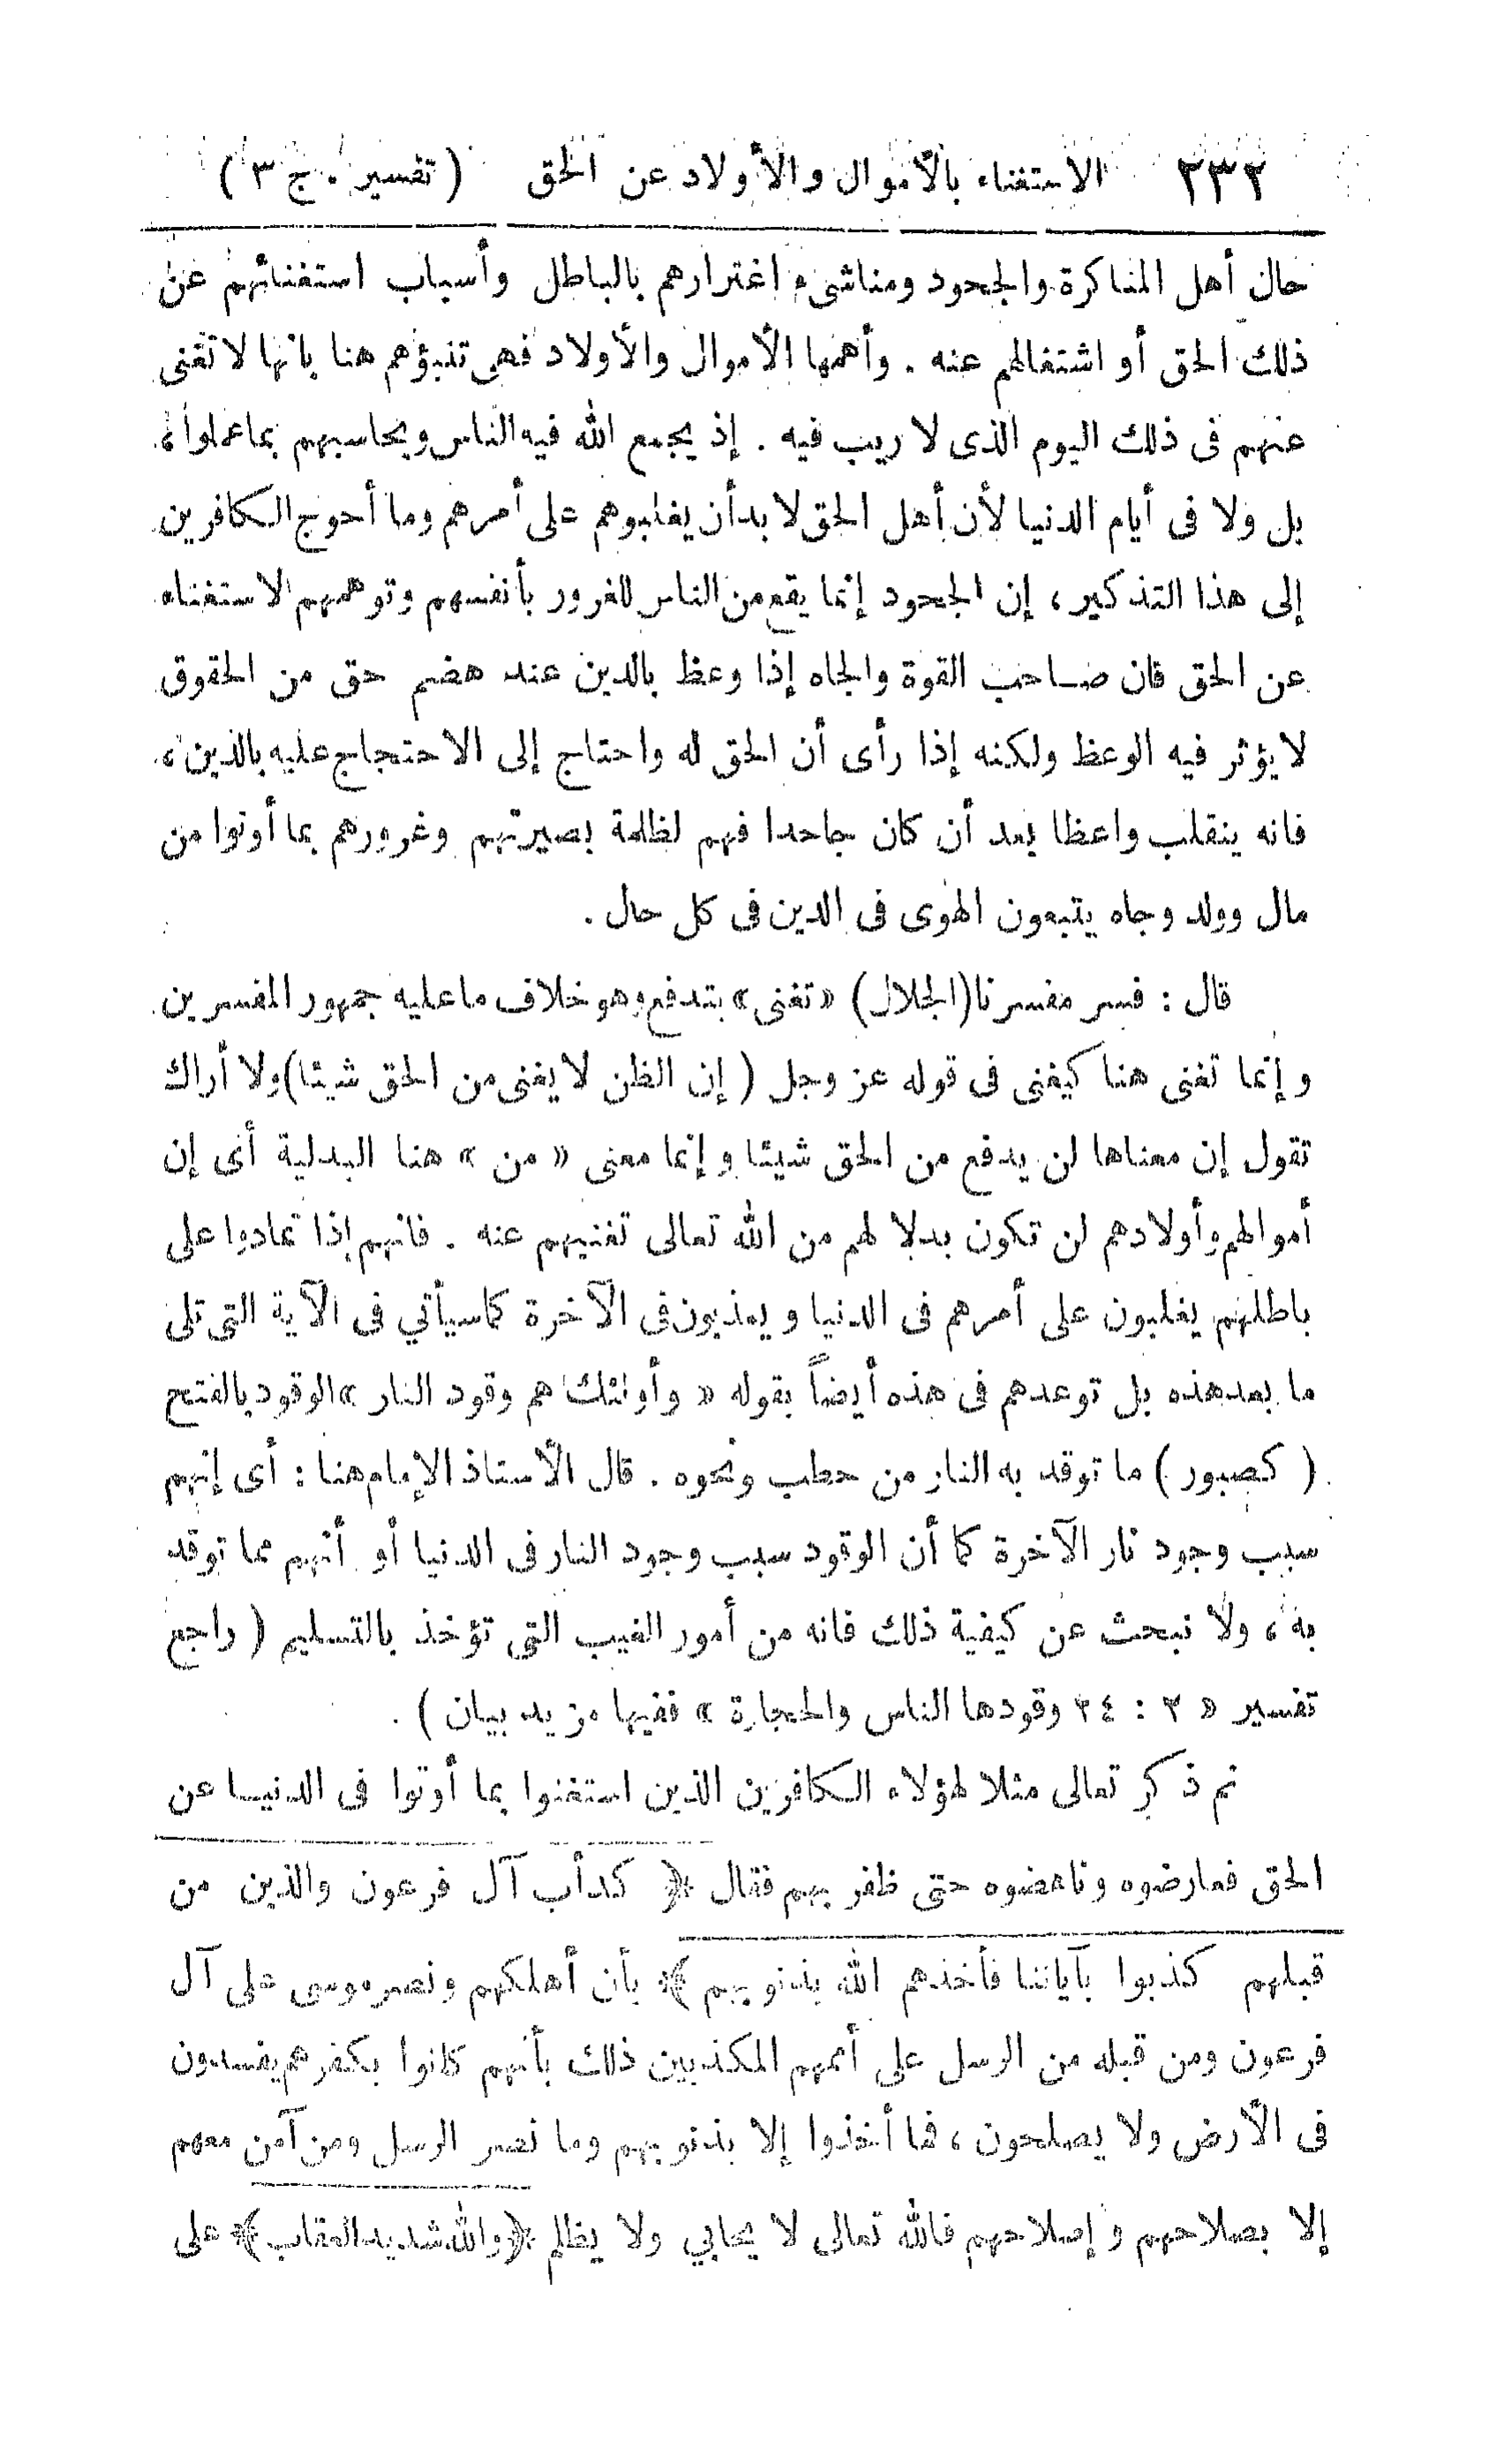 ٢٣٢ الاستغناء بالأموال والأولاد عن الحق (تفسير . ج ٣)
حال أهل المناكرة والجحود ومناشىء اغترارهم بالباطل وأسباب استغنائهم عن
ذلك الحق أو اشتغالهم عنه . وأهمها الأموال والأولاد فهى تنبؤهم هنا بانها لا تغنى
عنهم فى ذلك اليوم الذى لا ريب فيه . إذ يجمع الله فيه الناس ويحاسبهم بما عملوا ،
بل ولا فى أيام الدنيا لأن أهل الحق لا بد أن يغلبوهم على أمرهم وما أحوج الكافرين
إلى هذا التذكير ، إن الجحود إنما يقع من الناس للغرور بأنفسهم وتوهمهم الاستغناء
عن الحق فان صاحب القوة والجاه إذا وعظ بالدين عند هضم حق من الحقوق
لا يؤثر فيه الوعظ ولكنه إذا رأى أن الحق له واحتاج إلى الاحتجاج عليه بالدين ،
فانه ينقلب واعظا بعد أن كان جاحدا فهم لظلمة بصيرتهم وغرورهم بما أوتوا من
مال وولد وجاه يتبعون الهوى فى الدين فى كل حال .
قال : فسر مفسرنا (الجلال) « تغنى » بتدفع وهو خلاف ما عليه جمهور المفسرين
وإنما تغنى هنا كيغنى فى قوله عز وجل ( إن الظن لا يغنى من الحق شيئا) ولا أراك
تقول إن معناها لن يدفع من الحق شيئا وإنما معنى « من » هنا البدلية أى إن
أموالهم وأولادهم لن تكون بدلا لهم من الله تعالى تغنيهم عنه . فانهم إذا تمادوا على
باطلهم يغلبون على أمرهم فى الدنيا ويعذبون فى الآخرة كما سيأتي فى الآية التى تلى
ما بعد هذه بل توعدهم فى هذه أيضاً بقوله « وأولئك هم وقود النار » الوقود بالفتح
( كصبور ) ما توقد به النار من حطب ونحوه . قال الأستاذ الإمام هنا : أى إنهم
سبب وجود نار الآخرة كما أن الوقود سبب وجود النار فى الدنيا أو أنهم مما توقد
به ، ولا نبحث عن كيفية ذلك فانه من أمور الغيب التى تؤخذ بالتسليم ( راجع
تفسير « ٢ : ٢٤ وقودها الناس والحجارة » ففيها مزيد بيان ) .
ثم ذكر تعالى مثلا لهؤلاء الكافرين الذين استغنوا بما أوتوا فى الدنيا عن
الحق فعارضوه وناهضوه حتى ظفر بهم فقال ﴿ كدأب آل فرعون والذين من
قبلهم كذبوا بآياتنا فأخذهم الله بذنوبهم ﴾ بأن أهلكهم ونصر موسى على آل
فرعون ومن قبله من الرسل على أممهم المكذبين ذلك بأنهم كانوا بكفرهم يفسدون
فى الأرض ولا يصلحون ، فما أخذوا إلا بذنوبهم وما نصر الرسل ومن آمن معهم
إلا بصلاحهم وإصلاحهم فالله تعالى لا يحابي ولا يظلم ﴿ والله شديد العقاب ﴾ على